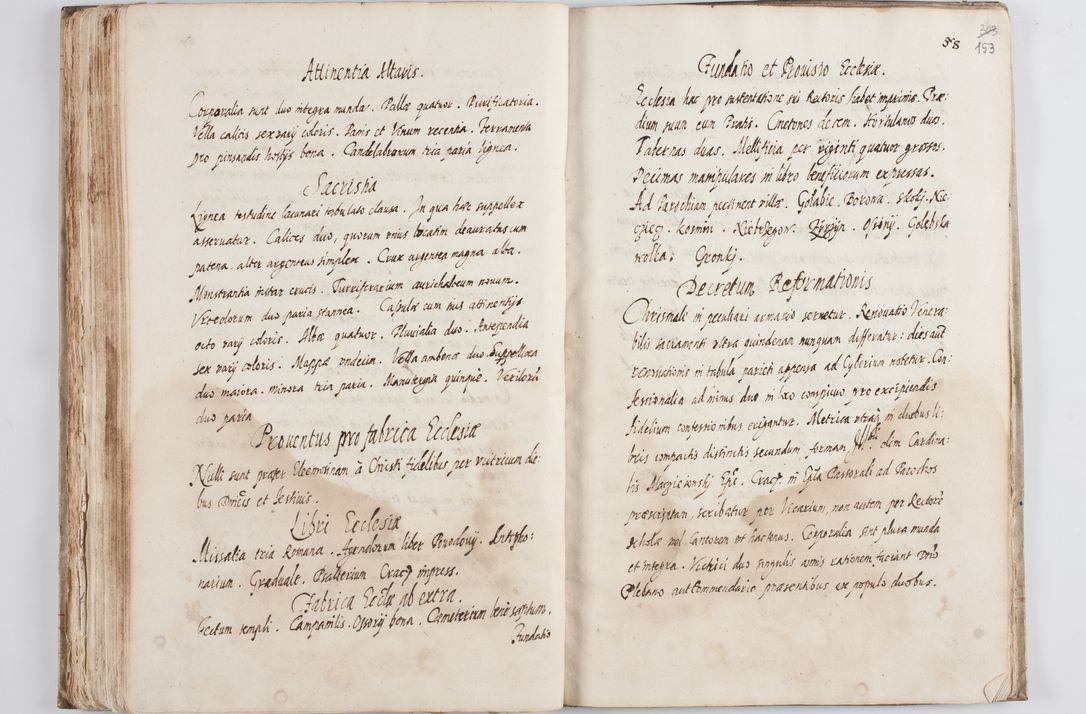 Attinentia Altaris.
Corporalia sunt duo integra munda. Pallæ quatuor. Purificatoria.
Vella calicis sex varij coloris. Panis et Vinum recentia. Ferramenta
pro pinsandis hostijs bona. Candelabrorum tria paria lignea.
Sacristia
Lignea testudine lacunari tabulato clausa. In qua hæc suppellex
asservatur. Calices duo, quorum unius deauratus cum
patena, alter argenteus simplex. Crux argentea magna alba.
Monstrantia instar crucis. Turriferarium aurichalceum novum.
Urceolorum duo paria stannea. Casulæ cum suis attinentijs
octo varij coloris. Albæ quatuor. Pluvialia duo. Antependia
sex varij coloris. Mappæ undecim. Vella ambonæ duo. Suppellicea
duo maiora. minora tria paria. Manutergia quinque. Vexilorū
duo paria
Proventus pro fabrica Ecclesiæ
Nulli sunt præter Eleemosinam à Christi fidelibus per vitricum die:
bus Dnicis et festivis.
Libri Ecclesiæ
Missalia tria Romana. Agendorum liber Povodovij. Antipho:
narium. Graduale. Psalterium Crac: impress.
Fabrica Ecclæ ab extra.
Tectum templi. Campanilis. Ossorij bona. Cæmeterium benè septum.
Fundatio
303
58
153
Fundatio et Provisio Ecclesiæ.
Ecclesia hæc pro sustentatione sui Rectoris habet inprimis. Præ:
dium suum cum Pratis. Cmetones decem. Hortulanos duos.
Tabernas duas. Mellificia per viginti quatuor grossos.
Decimas manipulares in libro beneficiorum expressas.
Ad Parochiam pertinent villæ. Golabie. Borowa. Nie:
Kosmin. Niebrzegow. Osiny. Golębska
wolla. Gronkj.
Decretum Reformationis
Chrismale in peculiari armario servetur. Renovatio Venera:
bilis sacramenti ultra quindenam nunquam differatur: dies aut
renovationis in tabula parieti appensa ad Cyborium notetur. Con:
fessionalia ad minus duo in loco conspicuo pro excipiendis
fidelium confessionibus erigantur. Metrica utraq in duobus li:
bris compactis distinctis secundum formam Illmi olim Cardina:
lis Macieiowskj Epi Crac: in Epla Pastorali ad Parochos
præscriptam, scribatur per Vicarium, non autem per Rectorē
scholæ vel Cantorem ut hactenus. Corporalia sint plura munda
et integra. Vitrici duo singulis annis rationem faciant Dno
Plebano aut Commendario præsentibus ex populo duobus.